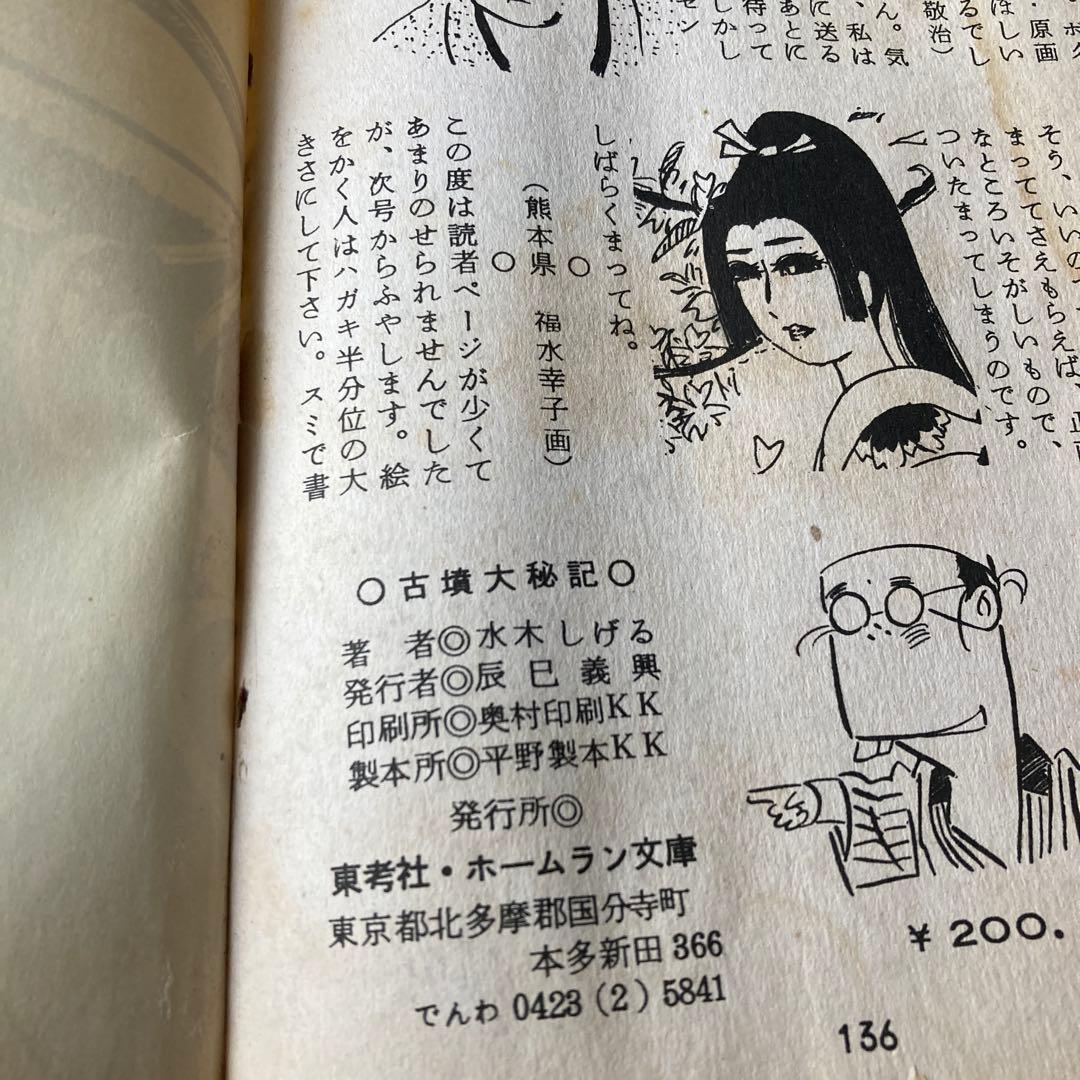 ほしい
・原画
るでし
敬治）
ん。気
、私は
に送る
あとに
待って
しかし
セン
そう、いいの
まっててさえもらえば、
なところいそがしいもので、
ついたまってしまうのです。
しばらくまってね。
（熊本県　福水幸子画）
○　○
この度は読者ページが少くて
あまりのせられませんでした
が、次号からふやします。絵
をかく人はハガキ半分位の大
きさにして下さい。スミで書
○古墳大秘記○
著　者◎水木しげる
発行者◎辰巳義興
印刷所◎奥村印刷KK
製本所◎平野製本KK
発行所◎
東考社・ホームラン文庫
東京都北多摩郡国分寺町
本多新田366
でんわ 0423（2）5841
¥200.
136